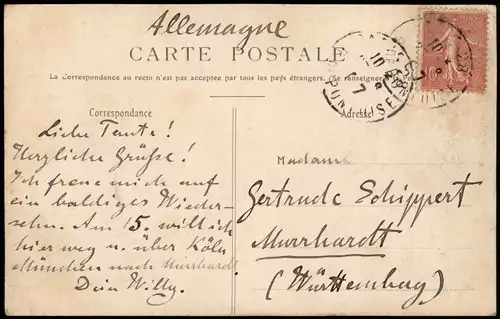 Allemagne
CARTE POSTALE
La Correspondance au recto n'est pas acceptée par tous les pays étrangers. (Se renseigner
Correspondance
Adresse
Liebe Tante!
Herzliche Grüße!
Ich freue mich auf
ein baldiges Wieder-
sehn. Am 15. will ich
hier weg u. über Köln
München nach Murrhardt.
Dein Willy.
Madame
Gertrude Schippert
Murrhardt
(Württemberg)